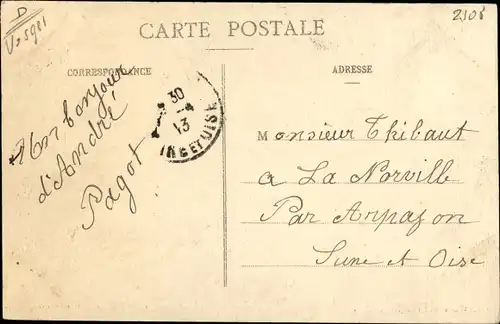 D
Vosges
2108
CARTE POSTALE
CORRESPONDANCE
ADRESSE
Un bonjour
d'André
Pagot
30
-4
13
ET OISE
Monsieur Thibaut
a La Norville
Par Arpajon
Seine et Oise